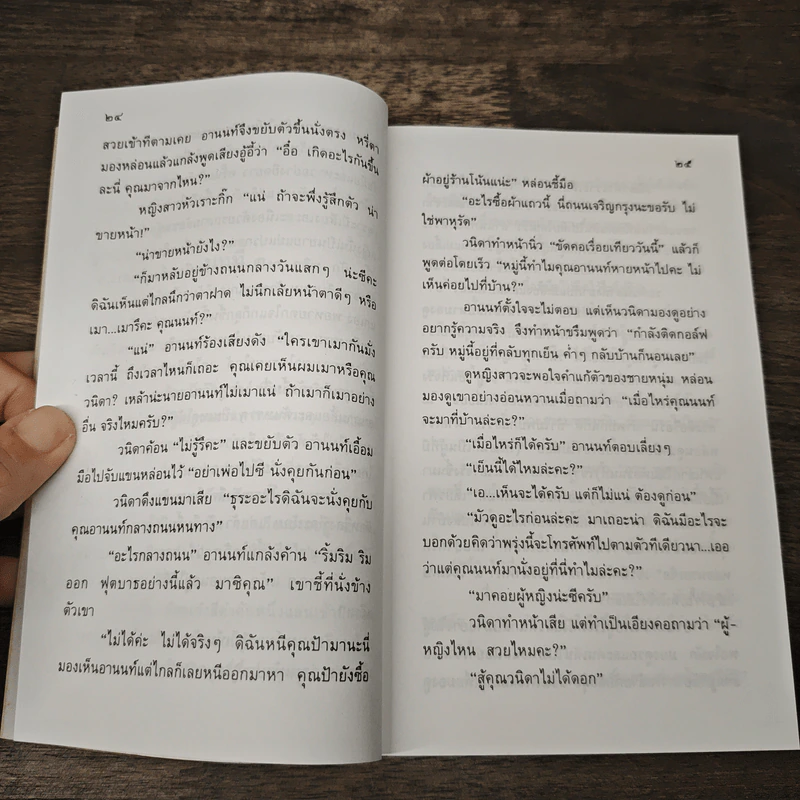 ๒๔
สวยเข้าทีตามเคย อานนท์จึงขยับตัวขึ้นนั่งตรง หรี่ตา
มองหล่อนแล้วแกล้งพูดเสียงอู้อี้ว่า “อื่อ เกิดอะไรกันขึ้น
ละนี่ คุณมาจากไหน?”
หญิงสาวหัวเราะกิ๊ก “แน่ ถ้าจะพึ่งรู้สึกตัว น่า
ขายหน้า!”
“น่าขายหน้ายังไง?”
“ก็มาหลับอยู่ข้างถนนกลางวันแสกๆ น่ะซีคะ
ดิฉันเห็นแต่ไกลนึกว่าตาฝาด ไม่นึกเล้ยหน้าตาดีๆ หรือ
เมา...เมารึคะ คุณนนท์?”
“แน่” อานนท์ร้องเสียงดัง “ใครเขาเมากันมั่ง
เวลานี้ ถึงเวลาไหนก็เถอะ คุณเคยเห็นผมเมาหรือคุณ
วนิดา? เหล้าน่ะนายอานนท์ไม่เมาแน่ ถ้าเมาก็เมาอย่าง
อื่น จริงไหมครับ?”
วนิดาค้อน “ไม่รู้รึคะ” และขยับตัว อานนท์เอื้อม
มือไปจับแขนหล่อนไว้ “อย่าเพ่อไปซี นั่งคุยกันก่อน”
วนิดาดึงแขนมาเสีย “ธุระอะไรดิฉันจะนั่งคุยกับ
คุณอานนท์กลางถนนหนทาง”
“อะไรกลางถนน” อานนท์แกล้งค้าน “ริ้มริม ริม
ออก ฟุตบาธอย่างนี้แล้ว มาซิคุณ” เขาชี้ที่นั่งข้าง
ตัวเขา
“ไม่ได้ค่ะ ไม่ได้จริงๆ ดิฉันหนีคุณป้ามานะนี่
มองเห็นอานนท์แต่ไกลก็เลยหนีออกมาหา คุณป้ายังซื้อ
๒๕
ผ้าอยู่ร้านโน้นแน่ะ” หล่อนชี้มือ
“อะไรซื้อผ้าแถวนี้ นี่ถนนเจริญกรุงนะขอรับ ไม่
ใช่พาหุรัด”
วนิดาทำหน้านิ่ว “ขัดคอเรื่อยเทียววันนี้” แล้วก็
พูดต่อโดยเร็ว “หมู่นี้ทำไมคุณอานนท์หายหน้าไปคะ ไม่
เห็นค่อยไปที่บ้าน?”
อานนท์ตั้งใจจะไม่ตอบ แต่เห็นวนิดามองดูอย่าง
อยากรู้ความจริง จึงทำหน้าขรึมพูดว่า “กำลังติดกอล์ฟ
ครับ หมู่นี้อยู่ที่คลับทุกเย็น ค่ำๆ กลับบ้านก็นอนเลย”
ดูหญิงสาวจะพอใจคำแก้ตัวของชายหนุ่ม หล่อน
มองดูเขาอย่างอ่อนหวานเมื่อถามว่า “เมื่อไหร่คุณนนท์
จะมาที่บ้านล่ะคะ?”
“เมื่อไหร่ก็ได้ครับ” อานนท์ตอบเลี่ยงๆ
“เย็นนี้ได้ไหมล่ะคะ?”
“เอ...เห็นจะได้ครับ แต่ก็ไม่แน่ ต้องดูก่อน”
“มัวดูอะไรก่อนล่ะคะ มาเถอะน่า ดิฉันมีอะไรจะ
บอกด้วยคิดว่าพรุ่งนี้จะโทรศัพท์ไปตามตัวทีเดียวนา...เออ
ว่าแต่คุณนนท์มานั่งอยู่ที่นี่ทำไมล่ะคะ?”
“มาคอยผู้หญิงน่ะซีครับ”
วนิดาทำหน้าเสีย แต่ทำเป็นเอียงคอถามว่า “ผู้-
หญิงไหน สวยไหมคะ?”
“สู้คุณวนิดาไม่ได้ดอก”